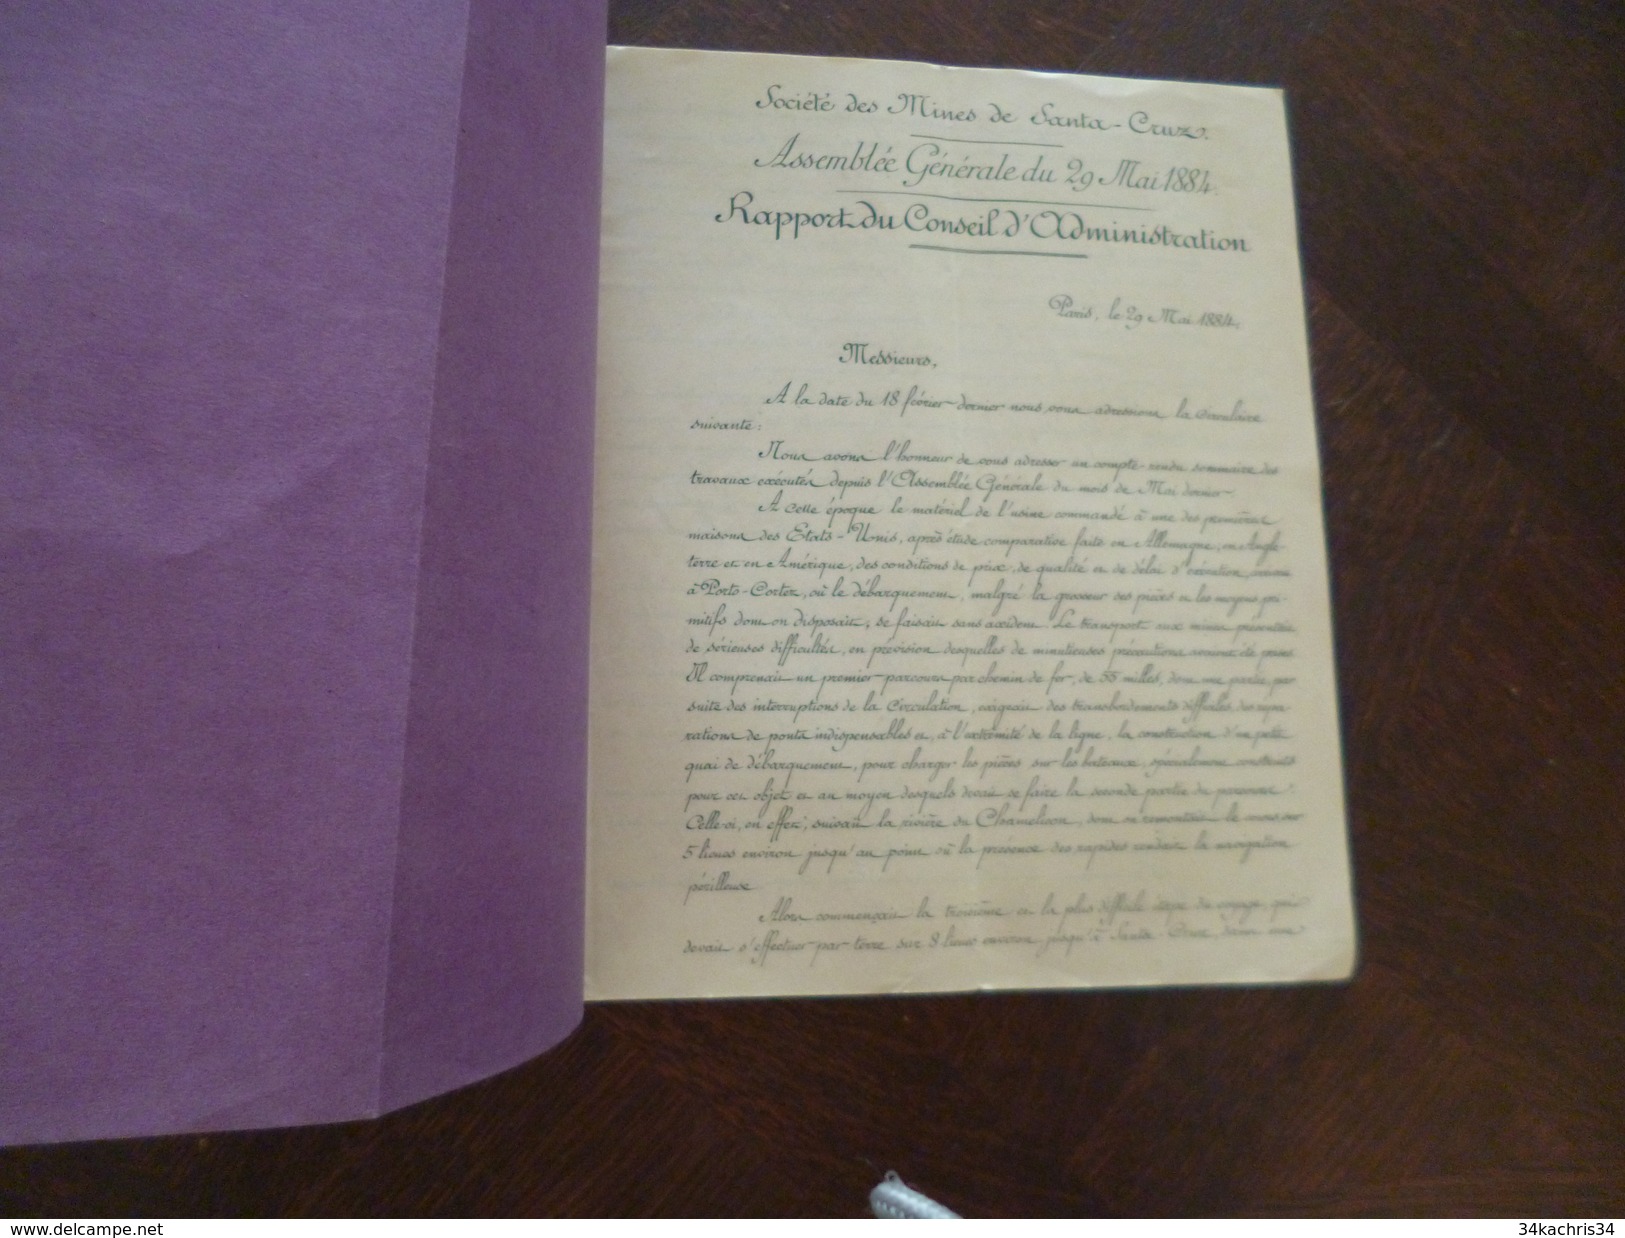 Société des Mines de Santa-Cruz.
Assemblée Générale du 29 Mai 1884.
Rapport du Conseil d'Administration
Paris, le 29 Mai 1884.
Messieurs,
A la date du 18 février dernier nous vous adressions la circulaire
suivante :
Nous avons l'honneur de vous adresser un compte-rendu sommaire des
travaux exécutés depuis l'Assemblée Générale du mois de Mai dernier.
A cette époque le matériel de l'usine commandé à une des premières
maisons des Etats-Unis, après étude comparative faite en Allemagne, en Angle-
terre et en Amérique, des conditions de prix, de qualité et de délai d'exécution
à Porto-Cortez, où le débarquement, malgré la grosseur des pièces et les moyens pri-
mitifs dont on disposait, se faisait sans accident. Le transport aux mines présentait
de sérieuses difficultés, en prévision desquelles de minutieuses précautions avaient été prises
Il comprenait un premier parcours par chemin de fer, de 55 milles, dont une partie, par
suite des interruptions de la Circulation, exigeait des transbordements difficiles, des répa-
rations de ponts indispensables et, à l'extrémité de la ligne, la construction d'un petit
quai de débarquement, pour charger les pièces sur les bateaux, spécialement construits
pour cet objet et au moyen desquels devait se faire la seconde partie du parcours.
Celle-ci, en effet, suivait la rivière du Chamelicon, dont on remontait le cours sur
5 lieues environ jusqu'au point où la présence des rapides rendait la navigation
périlleuse
Alors commençait la troisième et la plus difficile étape du voyage qui
devait s'effectuer par terre sur 8 lieues environ, jusqu'à Santa-Cruz, dans une
delcampe.net
34kachris34